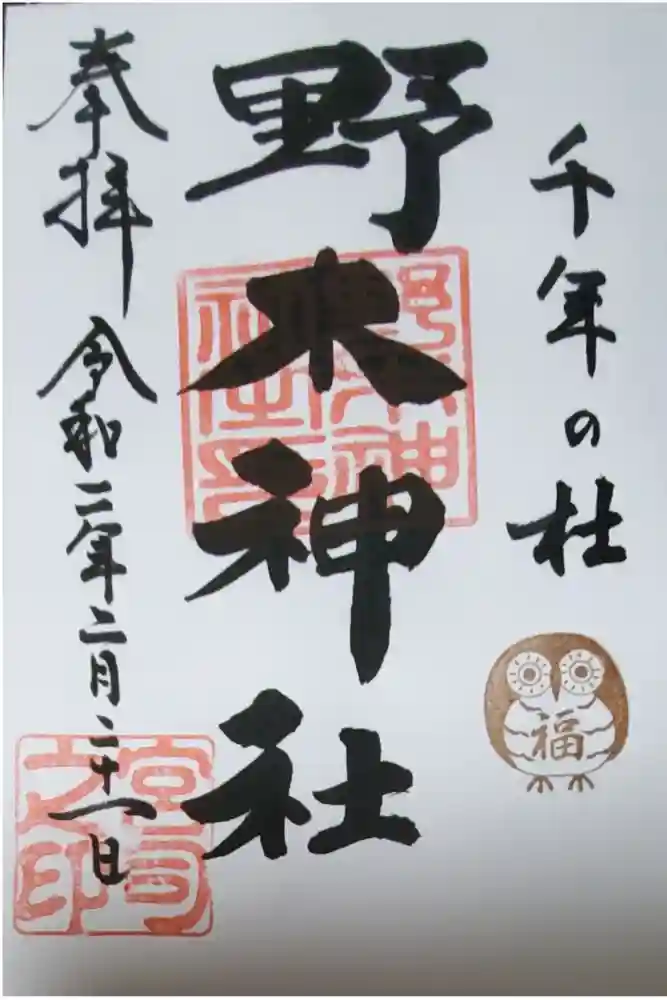 千年の杜
福
野木神社
野木神社之印
奉拝
令和二年二月二十一日
宮司之印